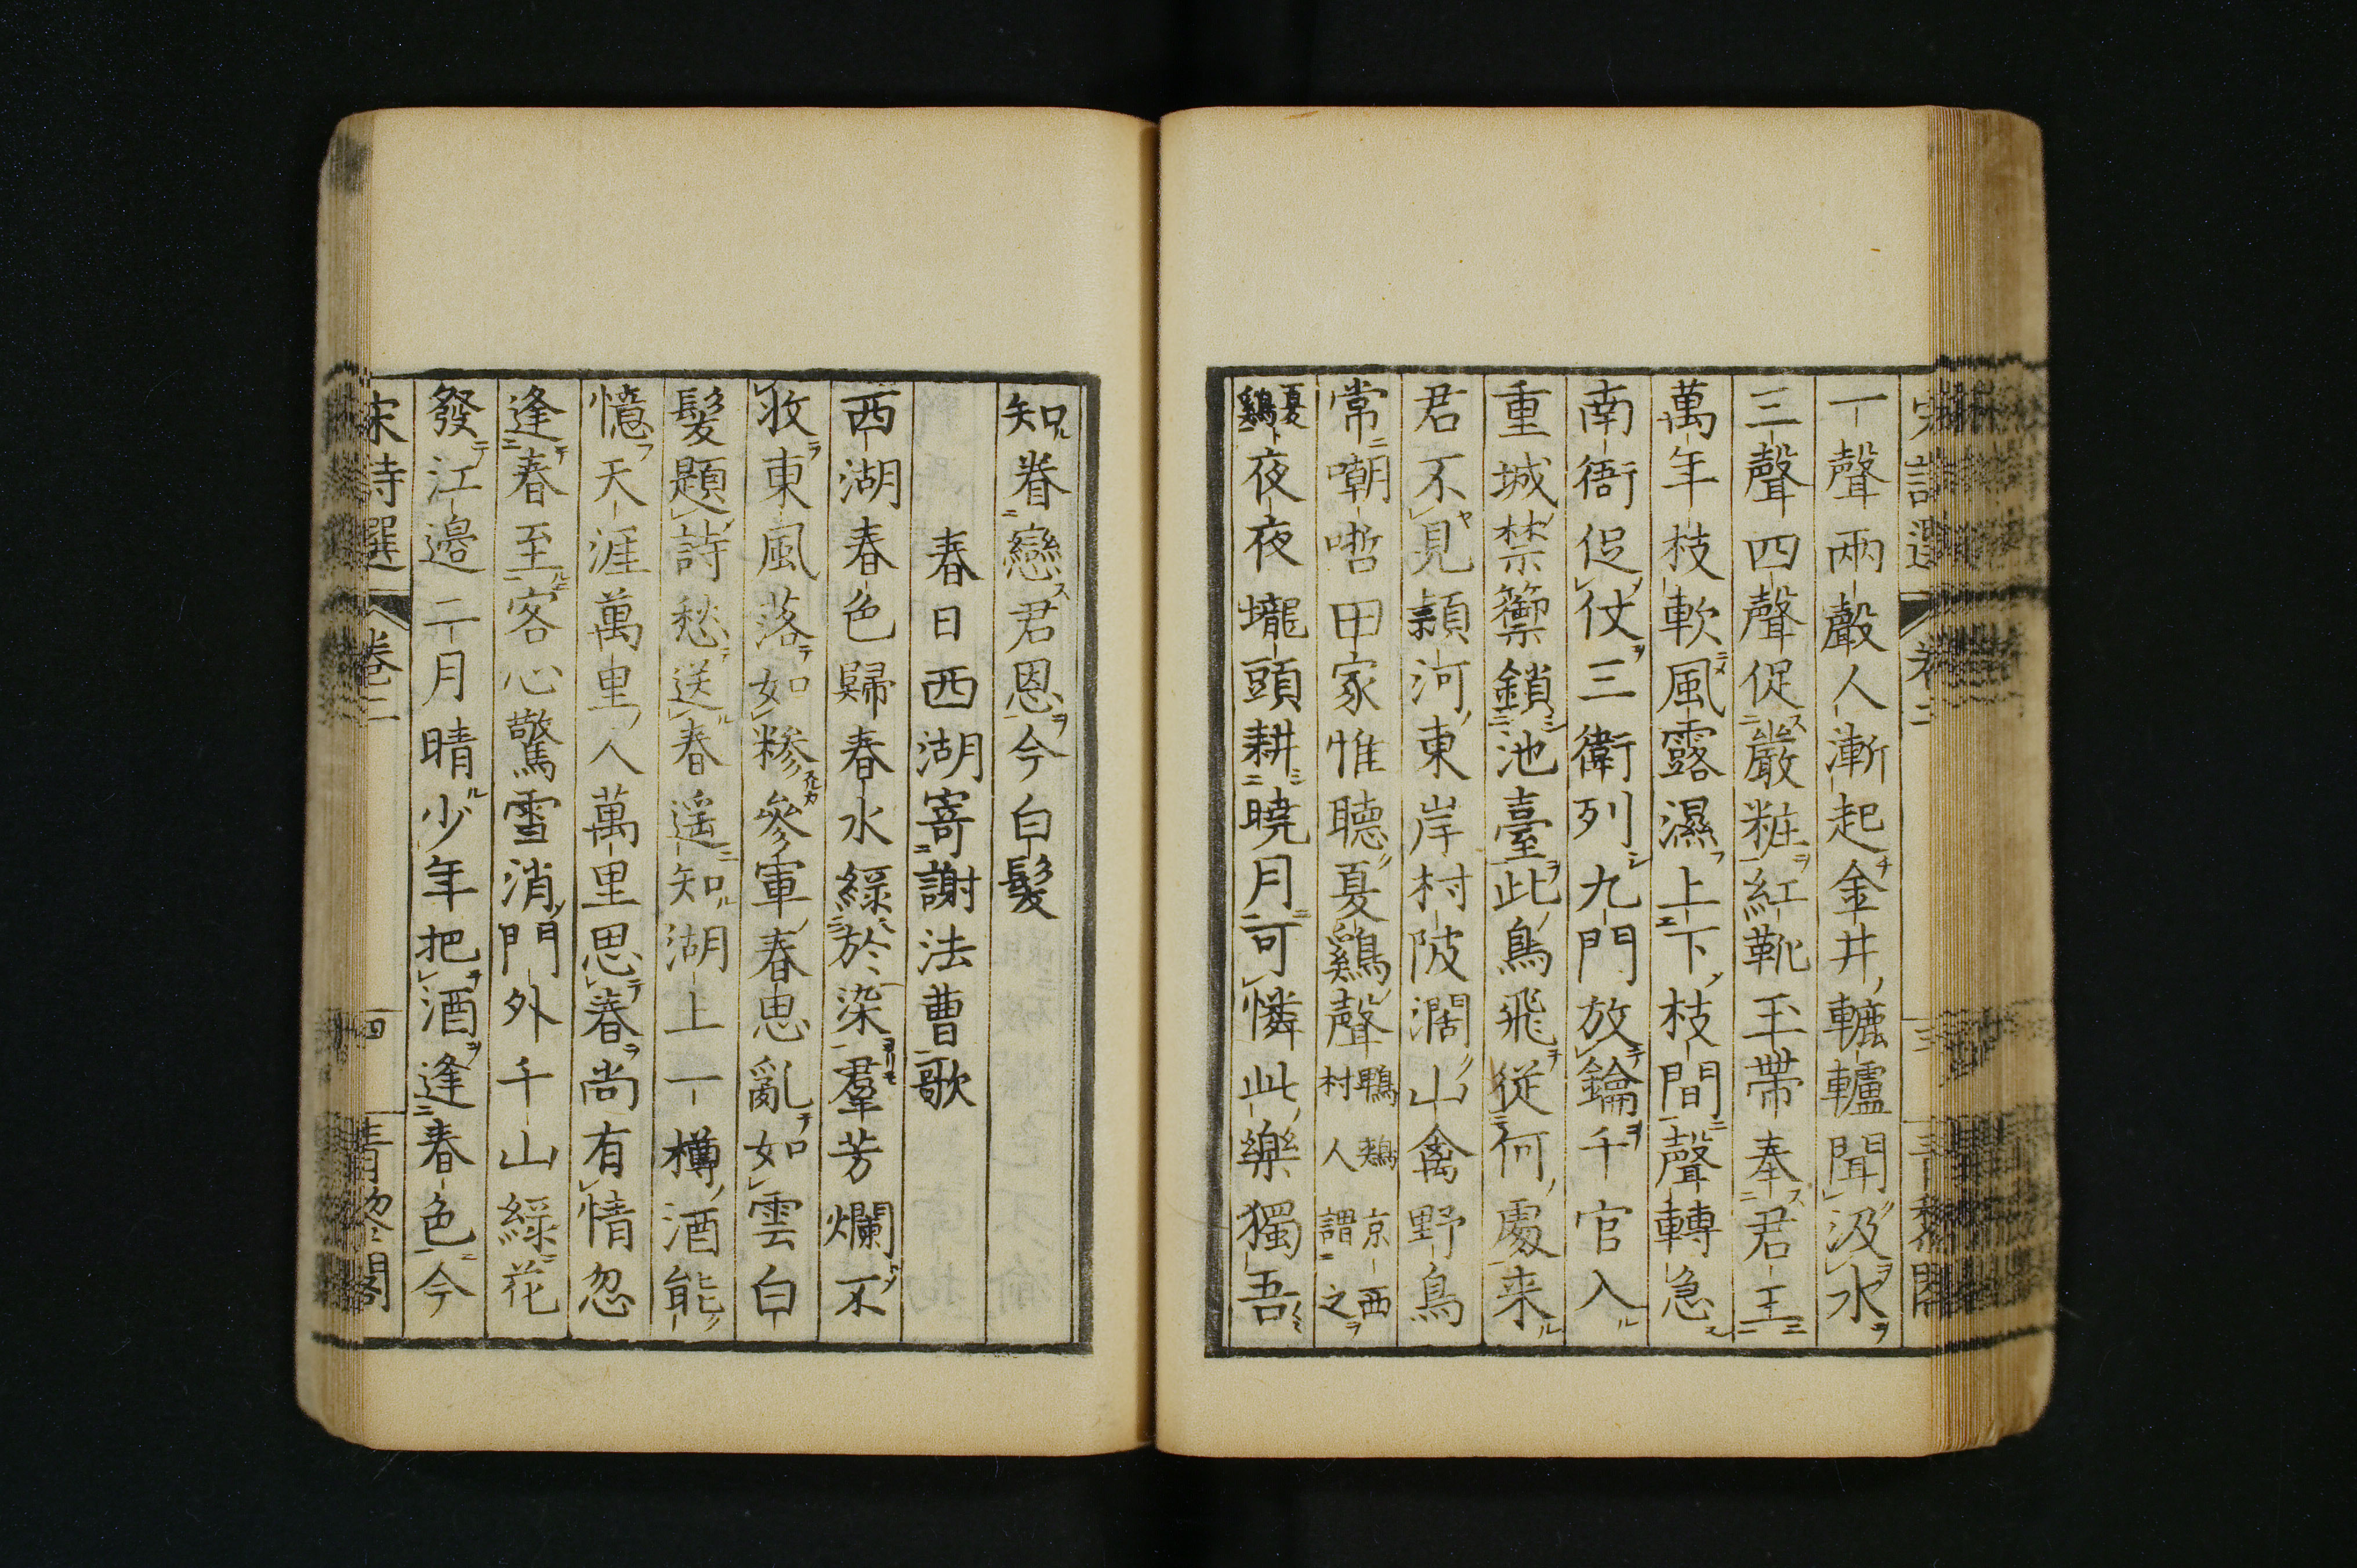 一聲兩聲人漸起金井轆轤聞汲水
三聲四聲促嚴粧紅靴玉帶奉君王
萬年枝軟風露濕上下枝間聲轉急
南衙促仗三衛列九門放鑰千官入
重城禁籞鎖池臺此鳥飛從何處来
君不見潁河東岸村陂濶山禽野鳥
常嘲哳田家惟聴夏鷄聲鵯鶋京西村人謂之
夏鷄夜夜壠頭耕曉月可憐此樂獨吾
知眷戀君恩今白髮
春日西湖寄謝法曹歌
西湖春色歸春水綠於染羣芳爛不
收東風落如糝參軍春思亂如雲白
髮題詩愁送春遥知湖上一樽酒能
憶天涯萬里人萬里思春尚有情忽
逢春至客心驚雪消門外千山綠花
發江邊二月晴少年把酒逢春色今
宋詩選 卷二 四 青黎閣